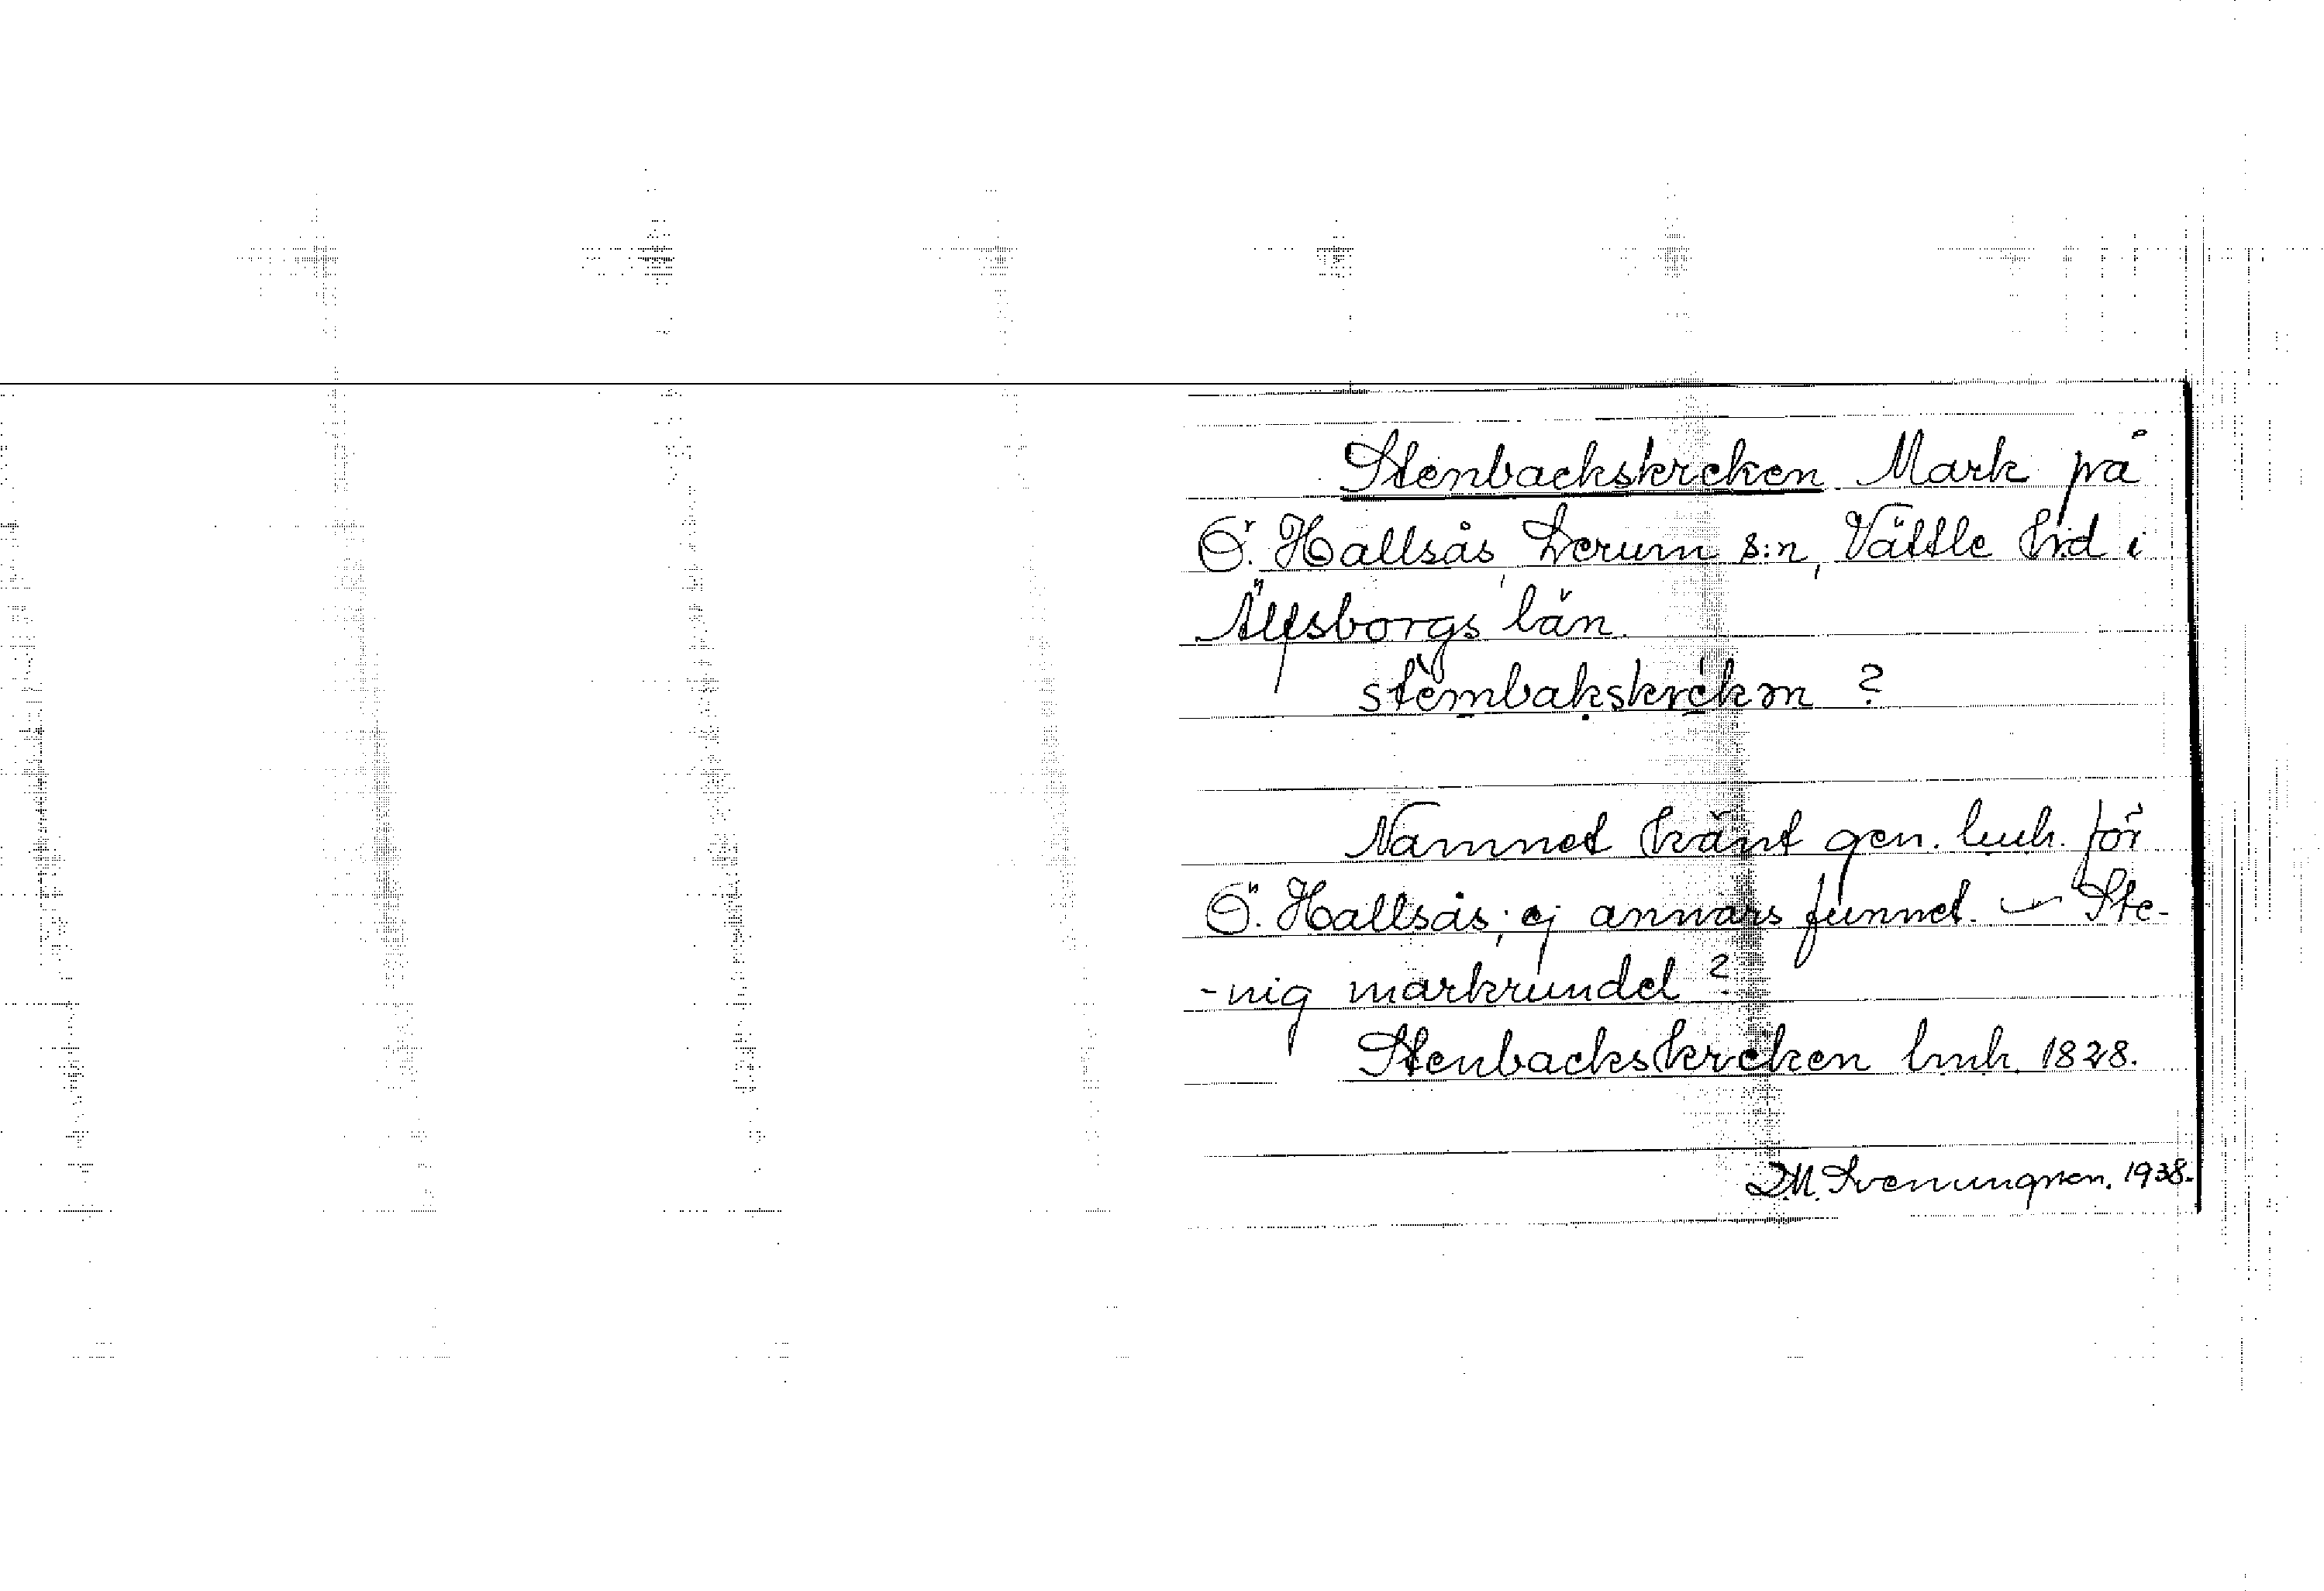 Stenbackskreken Mark på
Ö. Hallsås Lerum s:n, Vättle hrd i
Älfsborgs län.
stembakskrekm ?
Namnet känt gen. lmh. för
Ö. Hallsås; ej annars funnet. – Ste-
-nig markrundel ?
Stenbackskreken lmh. 1828.
D.M. Svenungsson. 1938.